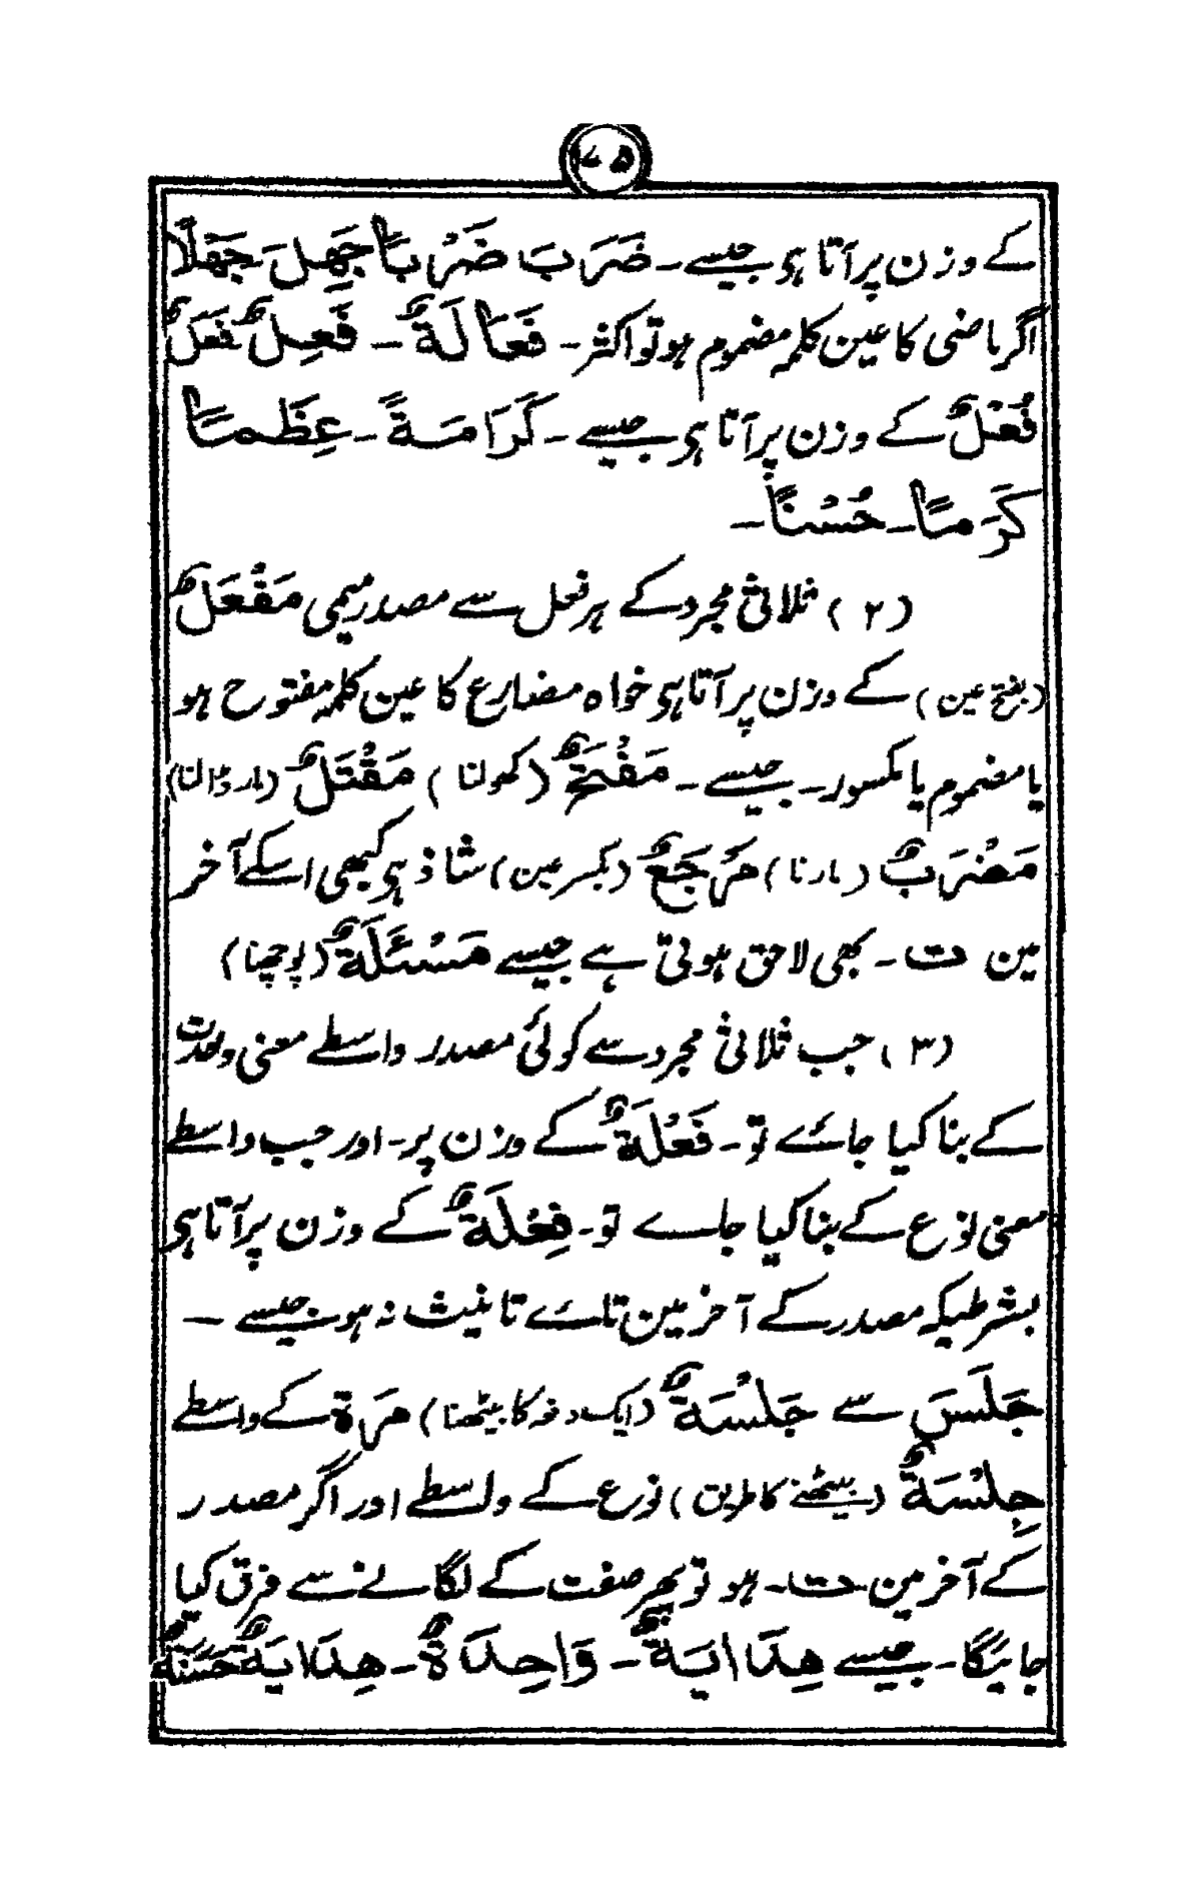 ۷۵
کے وزن پر آتا ہی جیسے ـ ضَرَبَ ضَرْبًا جَهِلَ ـ جَهْلًا
اگر ماضی کا عین کلمہ مضموم ہو تو اکثر ـ فَعَالَةٌ ـ فَعِلٌ فَعَلٌ
فُعْلٌ کے وزن پر آتا ہی جیسے ـ كَرَامَةً ـ عِظَمًا
كَرَمًا ـ حُسْنًا ـ
(۲) ثلاثی مجرد کے ہر فعل سے مصدر میمی مَفْعَلٌ
(بفتح عین) کے وزن پر آتا ہی خواہ مضارع کا عین کلمہ مفتوح ہو
یا مضموم یا مکسور ـ جیسے ـ مَفْتَحٌ (کھولنا) مَقْتَلٌ (مار ڈالنا)
مَضْرَبٌ (مارنا) مَرْجَعٌ (بکسر عین) شاذ ہی کبھی اسکے آخر
مین ت ـ بھی لاحق ہوتی ہے جیسے مَسْئَلَةٌ (پوچھنا)
(۳) جب ثلاثی مجرد سے کوئی مصدر واسطے معنی وحدت
کے بنا کیا جائے تو ـ فَعْلَةٌ کے وزن پر ـ اور جب واسطے
معنی نوع کے بنا کیا جاے تو ـ فِعْلَةٌ کے وزن پر آتا ہی
بشرطیکہ مصدر کے آخر مین تاے تانیث نہ ہو جیسے ـ
جَلَسَ سے جَلْسَةٌ (ایک دفہ کا بیٹھنا) مَرة کے واسطے
جِلْسَةٌ (بیٹھنے کا طریق) نوع کے واسطے اور اگر مصدر
کے آخر مین ت ـ ہو تو پھر صفت کے لگانے سے فرق کیا
جائیگا ـ جیسے هِدَايَةٌ ـ وَاحِدَةٌ ـ هِدَايَةٌ حَسَنَةٌ